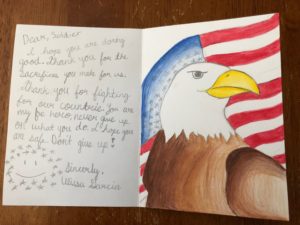 Dear, Soldier
I hope you are doing
good. Thank you for the
Sacrafices you make for us.
Thank you for fighting
for our countrie. You are
my hero, never give up
on what you do. I hope you
are safe. Don't give up!
Sincerly,
Garcia